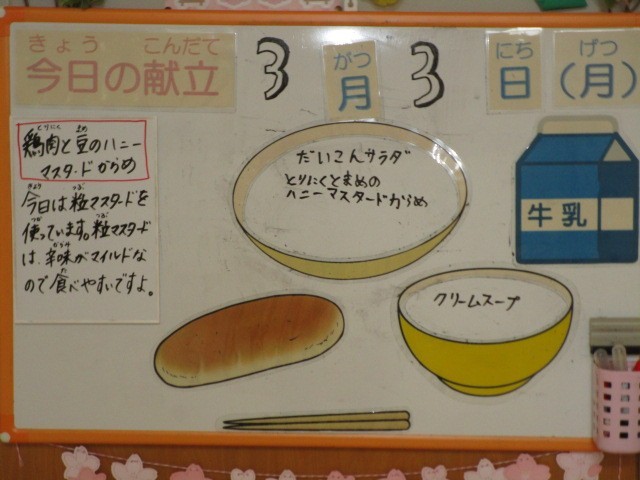 今日の献立 3月3日(月)
鶏肉と豆のハニー
マスタードがらめ
今日は粒マスタードを
使っています。粒マスタード
は、辛味がマイルドな
ので食べやすいですよ。
だいこんサラダ
とりにくとまめの
ハニーマスタードがらめ
牛乳
クリームスープ